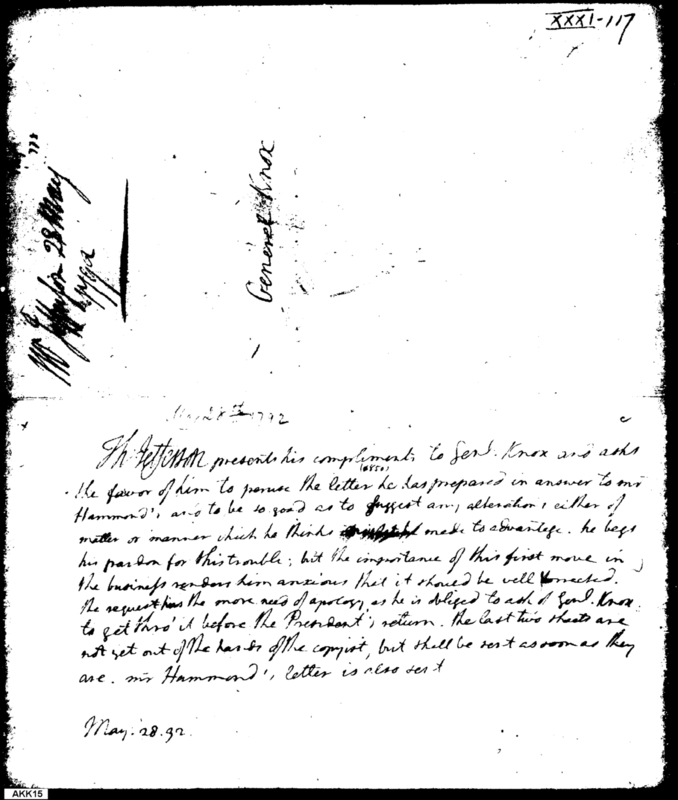 XXXI-117
General Knox
Mr Jefferson 28 May
May 28th 1792
Th: Jefferson presents his compliments to Genl. Knox and asks
the favor of him to peruse the letter (also) he has prepared in answer to mr
Hammond's, and to be so good as to suggest any alterations either of
matter or manner which he thinks made to advantage. he begs
his pardon for this trouble; but the importance of this first move in
the business renders him anxious that it should be well corrected.
the request has the more need of apology, as he is obliged to ask of Genl. Knox
to get thro' it before the President's return. the last two sheets are
not yet out of the hands of the copyist, but shall be sent as soon as they
are. mr Hammond's letter is also sent
May. 28. 92.
AKK15